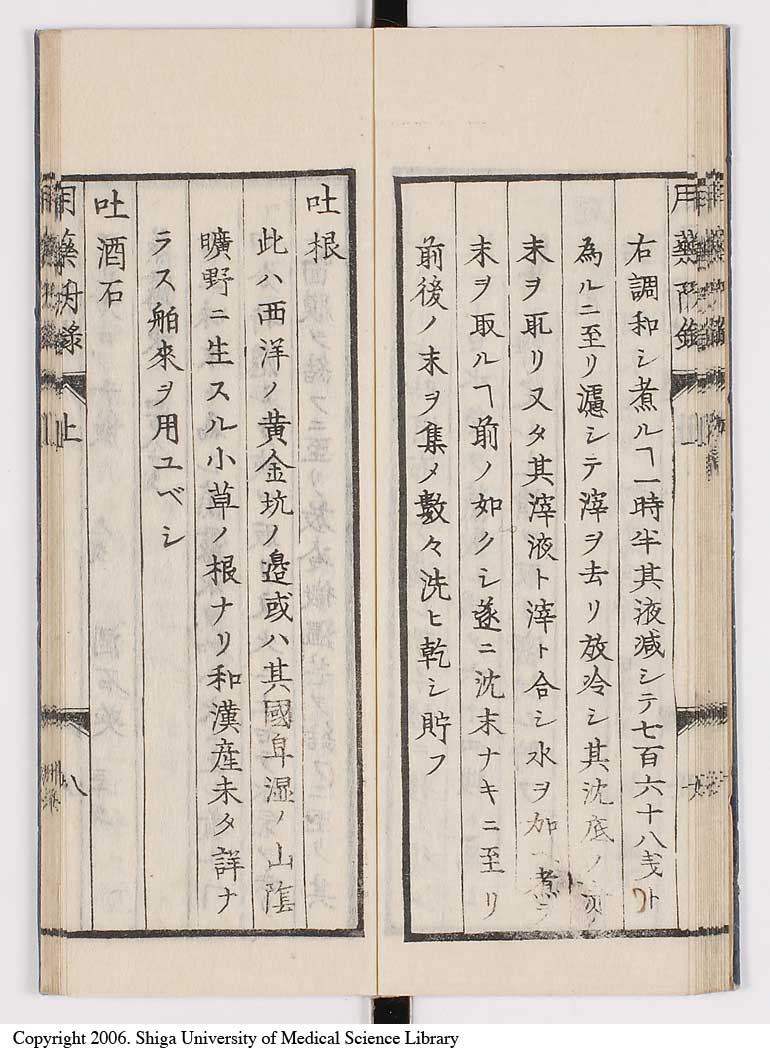 用藥附錄
右調和シ煮ルヿ一時半其液減シテ七百六十八戔ト
為ルニ至リ濾シテ滓ヲ去リ放冷シ其沈底ノ
末ヲ取リ又タ其滓液ト滓ト合シ水ヲ加 煮
末ヲ取ルヿ前ノ如クシ遂ニ沈末ナキニ至リ
前後ノ末ヲ集メ數々洗ヒ乾シ貯フ
吐根
此ハ西洋ノ黄金坑ノ邉或ハ其國卑湿ノ山陰
曠野ニ生スル小草ノ根ナリ和漢産未タ詳ナ
ラス舶來ヲ用ユベシ
吐酒石
用藥附錄 上 八
Copyright 2006. Shiga University of Medical Science Library